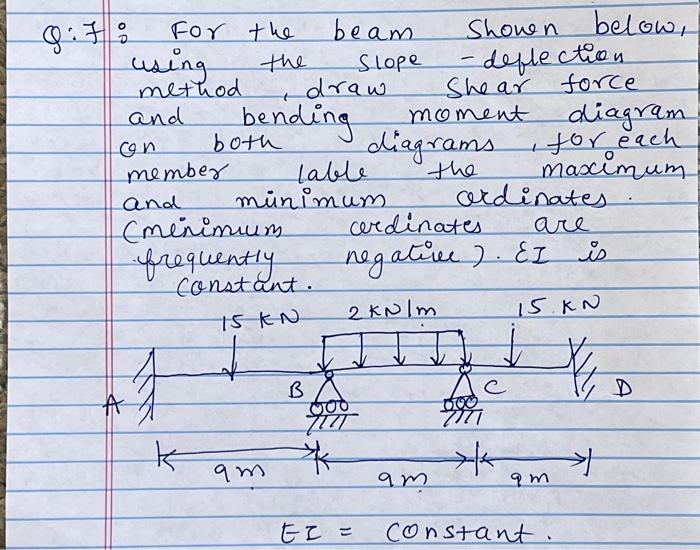 Q:7: For the beam Shown below,
using the slope - deflection
method, draw Shear force
and bending moment diagram
on both diagrams, for each
member lable the maximum
and minimum ordinates.
(minimium ordinates are
frequently negative). EI is
constant.
15 KN 2 KN/m 15 KN
A B C D
9m 9m 9m
EI = constant.